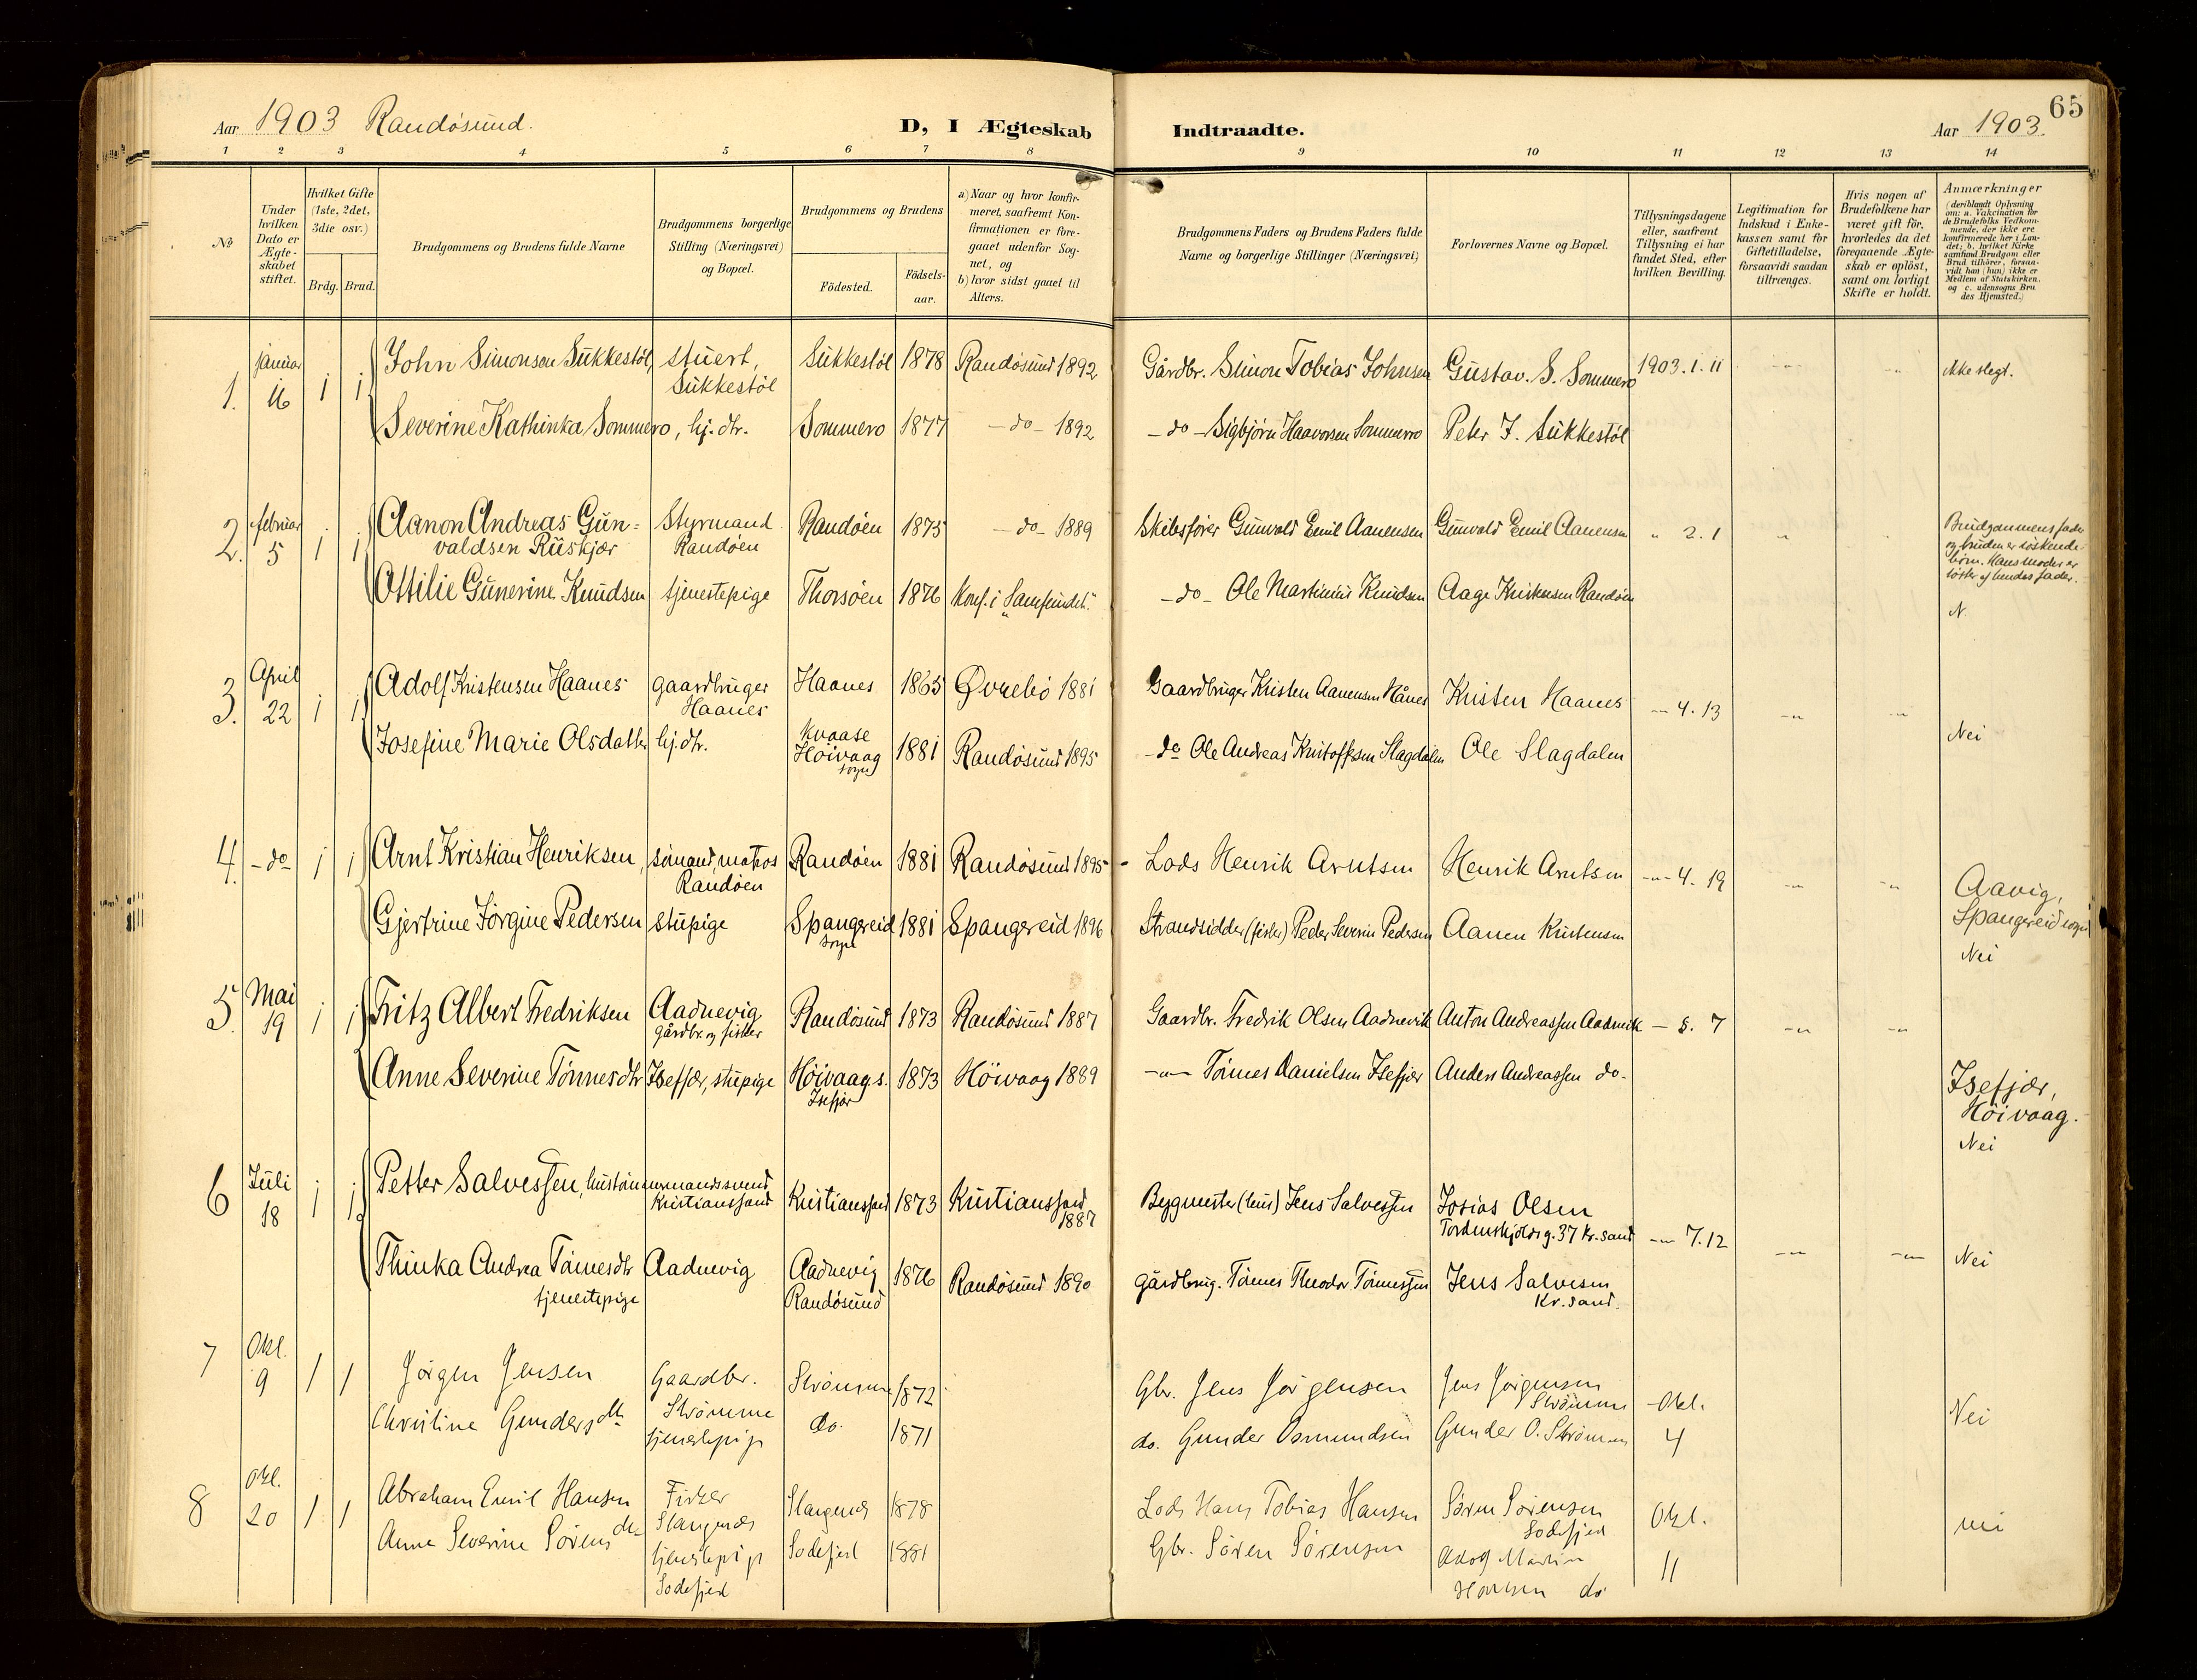 65
Aar 1903 Randøsund.
D, I Ægteskab Indtraadte.
Aar 1903.
1 2 3 4 5 6 7 8 9 10 11 12 13 14
No
Under hvilken Dato er Ægteskabet stiftet.
Hvilket Gifte (1ste, 2det, 3die osv.)
Brdg. Brud.
Brudgommens og Brudens fulde Navne
Brudgommens borgerlige Stilling (Næringsvei) og Bopæl.
Brudgommens og Brudens
Fødested.
Fødselsaar.
a) Naar og hvor konfirmeret, saafremt Konfirmationen er foregaaet udenfor Sognet, og
b) hvor sidst gaaet til Alters.
Brudgommens Faders og Brudens Faders fulde Navne og borgerlige Stillinger (Næringsvei)
Forlovernes Navne og Bopæl.
Tillysningsdagene eller, saafremt Tillysning ei har fundet Sted, efter hvilken Bevilling.
Legitimation for Indskud i Enkekassen samt for Giftetilladelse, forsaavidt saadan tiltrænges.
Hvis nogen af Brudefolkene har været gift før, hvorledes da det foregaaende Ægteskab er opløst, samt om lovligt Skifte er holdt.
Anmærkninger
(deriblandt Oplysning om: a. Vakcination for de Brudefolks Vedkommende, der ikke ere konfirmerede her i Landet; b. hvilket Kirkesamfund Brudgom eller Brud tilhører, forsaavidt han (hun) ikke er Medlem af Statskirken, og c. udensogns Brudes Hjemsted.)
1. januar 16 1 1 John Simonsen Sukkestøl, stuert, Sukkestøl Sukkestøl 1878 Randøsund 1892 Gårdbr. Simon Tobias Johnsen Gustav. S. Sommero 1903. 1. 11 ikke slegt.
Severine Kathinka Sommero, hj. dtr. Sommero 1877 -do- 1892 -do- Sigbjørn Haavorsen Sommero Peter J. Sukkestøl
2. februar 5 1 1 Aanon Andreas Gunvaldsen Ruskjær Styrmand Randøen Randøen 1875 -do- 1889 Skibsfører Gunvald Emil Aanensen Gunvald Emil Aanensen " 2. 1 " Brudgommens fader og bruden er søskendebørn. Hans moder er søster af hendes fader.
Ottilie Gunerine Knudsen tjenestepige Thorsøen 1876 Konf. i "Samfundet" -do- Ole Martinius Knudsen Aage Kristensen Randøen N.
3. April 22 1 1 Adolf Kristensen Haanes gaardbruger Haanes Haanes 1865 Øvrebø 1881 Gaardbruger Kristen Aanensen Hånes Kristen Haanes -"- 4. 13 -"- -"- Nei
Josefine Marie Olsdatter hj. dtr. Kvaase Høivaag sogn 1881 Randøsund 1895 -do Ole Andreas Kristoffersen Slagdalen Ole Slagdalen
4. -do- 1 1 Arnt Kristian Henriksen, sømand, matros Randøen Randøen 1881 Randøsund 1895 - Lods Henrik Arntsen Henrik Arntsen -"- 4. 19 -"- -"- Aavig, Spangereid sogn
Gjertrine Jørgine Pedersen stupige Spangereid sogn 1881 Spangereid 1896 Strandsidder (fisker) Peder Severin Pedersen Aanen Kristensen Nei
5. Mai 19 1 1 Fritz Albert Fredriksen Aadnevig gårdbr. og fisker Randøsund 1873 Randøsund 1887 Gaardbr. Fredrik Olsen Aadnevik Anton Andreassen Aadnevik - 5. 7 -"- -"-
Anne Severine Tønnesdtr Isefjær, stupige Høivaag s. Isefjær 1873 Høivaag 1889 -"- Tønnes Danielsen Isefjær Anders Andreassen do- Isefjær, Høivaag.
Nei
6 Juli 18 1 1 Petter Salvessen, hustømmermandssvend Kristianssand Kristianssand 1873 Kristianssand 1887 Bygmester (hus) Jens Salvessen Josias Olsen Tordenskjoldsg. 37 Kr. sand -"- 7. 12 -"- -"- Nei
Thinka Andrea Tønnesdtr tjenestepige Aadnevig Aadnevig Randøsund 1876 Randøsund 1890 gårdbrug. Tønnes Theodor Tønnessen Jens Salvesen Kr. sand.
7 Okt. 9 1 1 Jørgen Jensen Gaardbr. Strømme Strømme 1872 Gbr. Jens Jørgensen Jens Jørgensen Strømme -Okt. 4 Nei
Christine Gundersdtr tjenestepige do. 1871 do. Gunder Osmundsen Gunder O. Strømme
8 Okt. 20 1 1 Abraham Emil Hansen Fisker Stangenes Stangenes 1878 Lods Hans Tobias Hansen Søren Sørensen Sodefjed Okt. 11 nei
Anne Severine Sørensdtr tjenestepige Sodefjed Sodefjed 1881 Gbr. Søren Sørensen Adolf Martin Hansen do